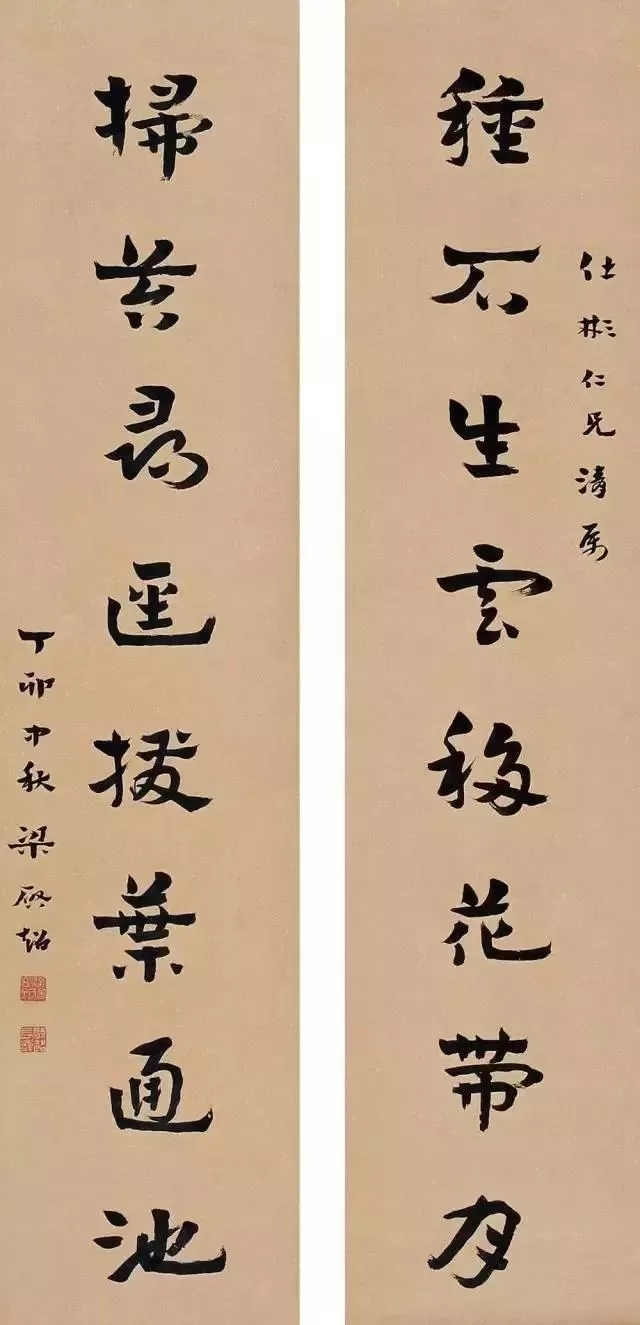 仕彬仁兄清屬
種石生雲移花帶月
掃苔尋逕撥葉通池
丁卯中秋梁啟超